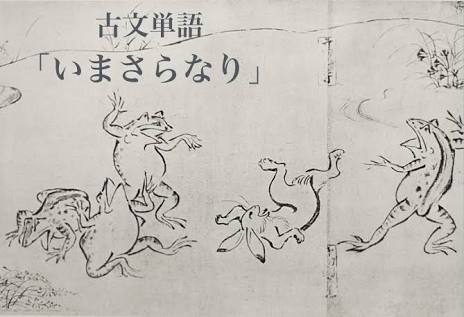 古文単語
「いまさらなり」